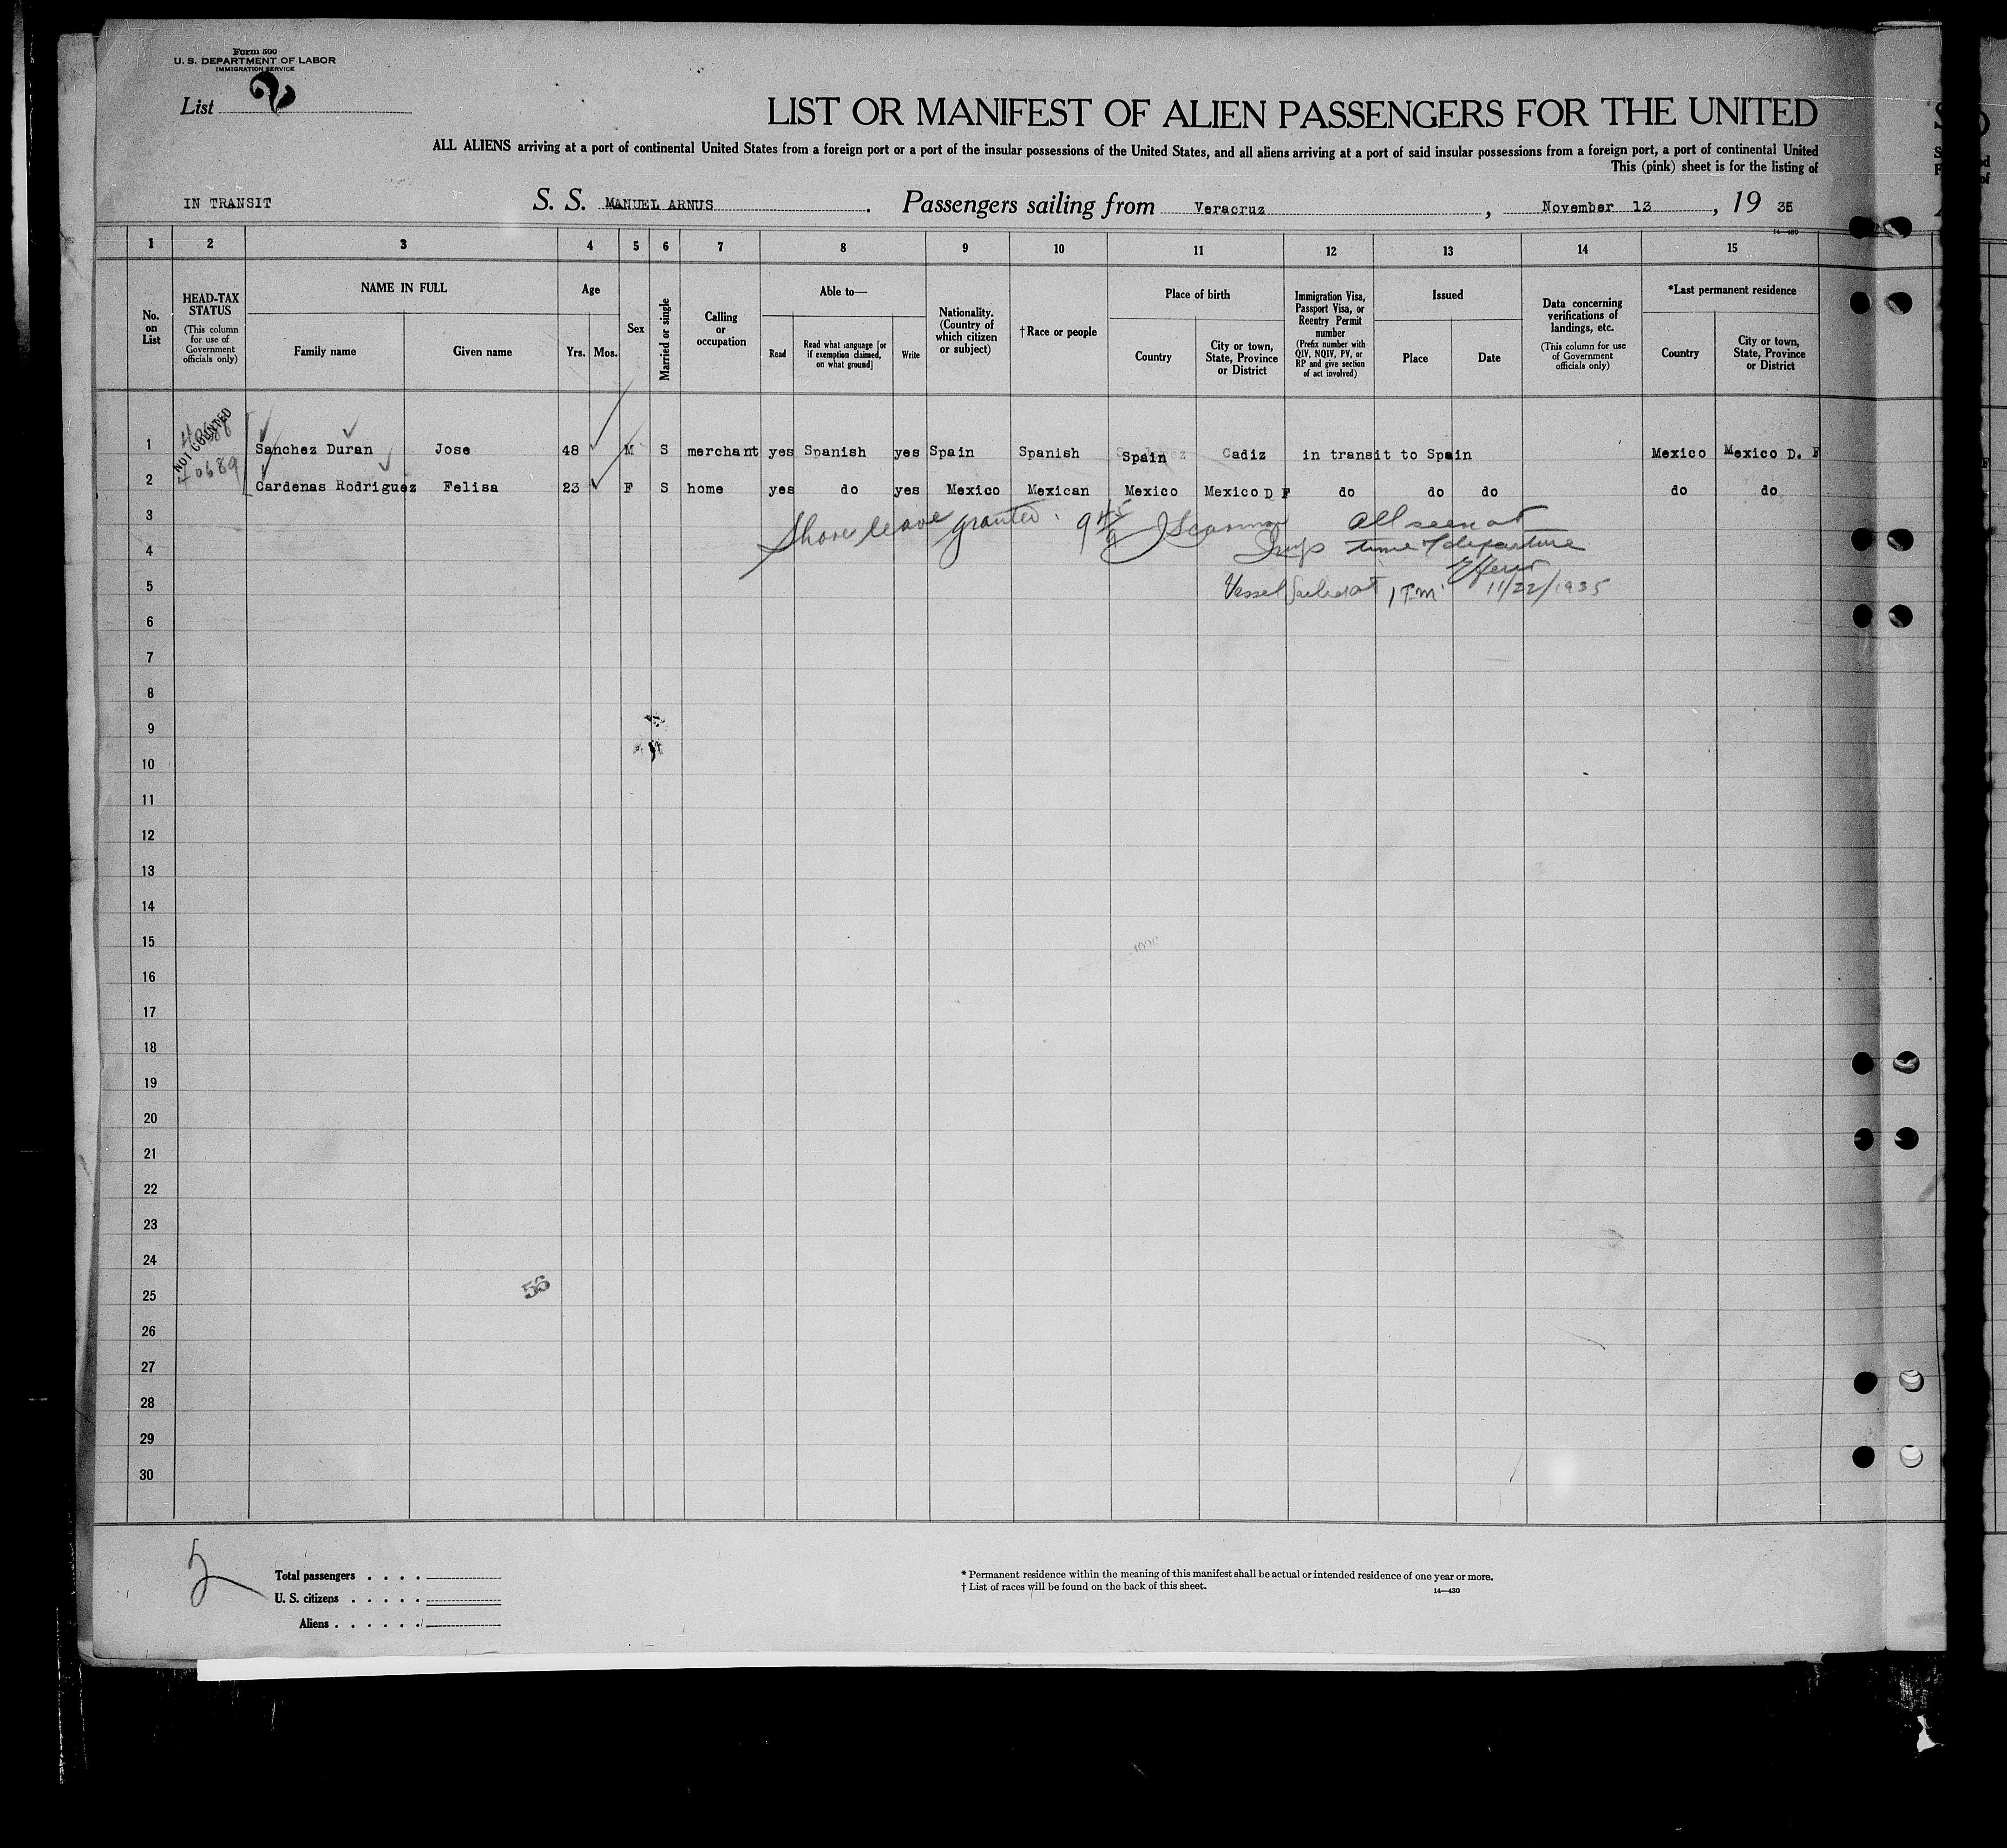 Form 500
U. S. DEPARTMENT OF LABOR
IMMIGRATION SERVICE
List 2
LIST OR MANIFEST OF ALIEN PASSENGERS FOR THE UNITED
ALL ALIENS arriving at a port of continental United States from a foreign port or a port of the insular possessions of the United States, and all aliens arriving at a port of said insular possessions from a foreign port, a port of continental United
This (pink) sheet is for the listing of
IN TRANSIT S. S. MANUEL ARNUS . Passengers sailing from Veracruz , November 13 , 19 35
14—430
1 2 3 4 5 6 7 8 9 10 11 12 13 14 15
No. on List
HEAD-TAX STATUS (This column for use of Government officials only)
NAME IN FULL
Family name Given name
Age
Yrs. Mos.
Sex
Married or single
Calling or occupation
Able to—
Read
Read what language [or if exemption claimed, on what ground]
Write
Nationality. (Country of which citizen or subject)
†Race or people
Place of birth
Country
City or town, State, Province or District
Immigration Visa, Passport Visa, or Reentry Permit number (Prefix number with QIV, NQIV, PV, or RP and give section of act involved)
Issued
Place Date
Data concerning verifications of landings, etc. (This column for use of Government officials only)
*Last permanent residence
Country
City or town, State, Province or District
NOT COUNTED
1 Sanchez Duran Jose 48 M S merchant yes Spanish yes Spain Spanish Spain Cadiz in transit to Spain Mexico Mexico D. F
40689
2 Cardenas Rodriguez Felisa 23 F S home yes do yes Mexico Mexican Mexico Mexico D F do do do do do
3 Shore leave granted. 9 45 All seen at
4 Insp time of departure
5 Vessel Sailed at 1 P.M. 11/22/1935
6
7
8
9
10
11
12
13
14
15
16
17
18
19
20
21
22
23
24
25
56
26
27
28
29
30
2
Total passengers . . . .
U. S. citizens . . . . .
Aliens . . . . . .
* Permanent residence within the meaning of this manifest shall be actual or intended residence of one year or more.
† List of races will be found on the back of this sheet.
14—430